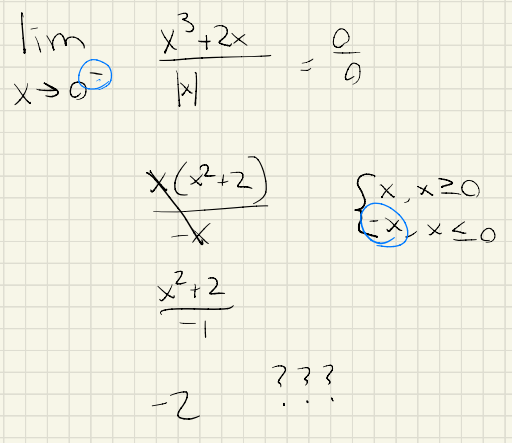 lim x→0⁻ (x³+2x)/|x| = 0/0
x(x²+2)/-x { x, x≥0
-x, x≤0
(x²+2)/-1
-2 ???